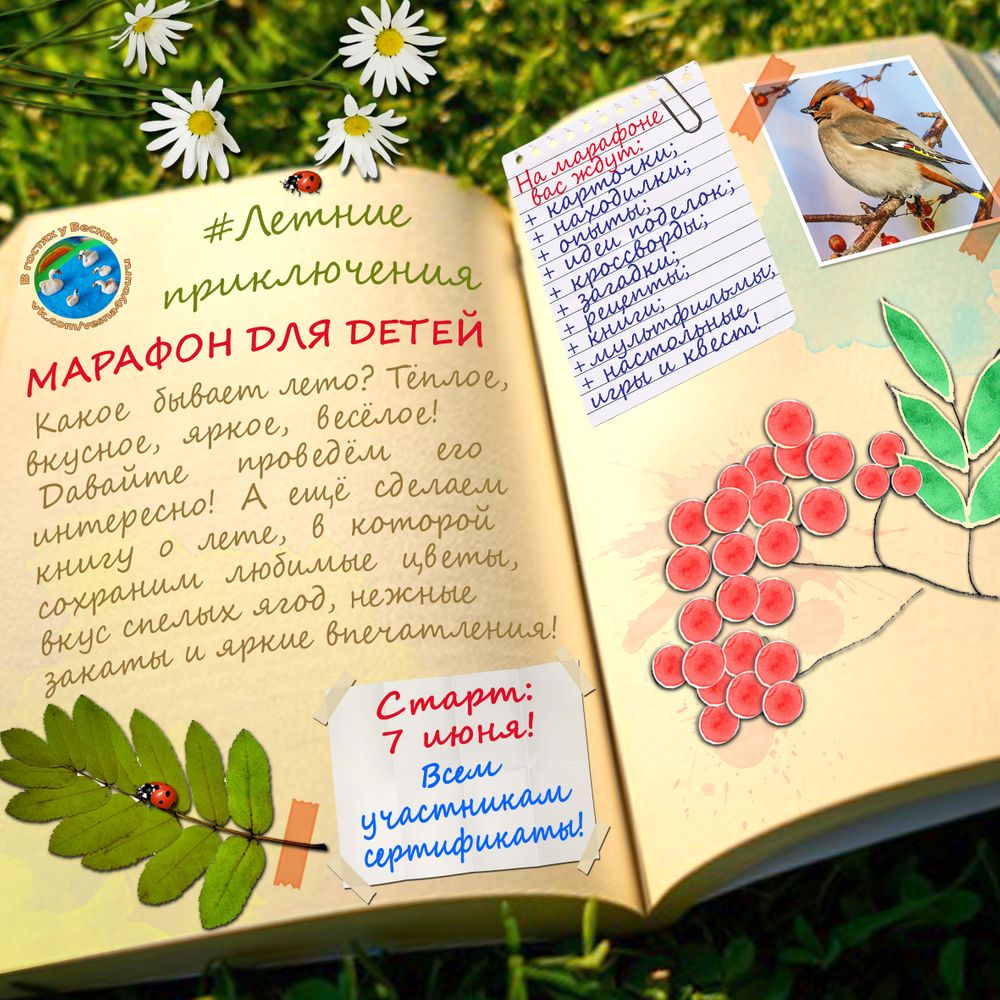 В гостях у Весны
vk.com/vesna4young.ru
#Летние
приключения
МАРАФОН ДЛЯ ДЕТЕЙ
Какое бывает лето? Тёплое,
вкусное, яркое, весёлое!
Давайте проведём его
интересно! А ещё сделаем
книгу о лете, в которой
сохраним любимые цветы,
вкус спелых ягод, нежные
закаты и яркие впечатления!
Старт:
7 июня!
Всем
участникам
сертификаты!
На марафоне
вас ждут:
+ карточки;
+ находилки;
+ опыты;
+ идеи поделок;
+ кроссворды;
+ загадки;
+ рецепты;
+ книги;
+мультфильмы;
+ настольные
игры и квест!